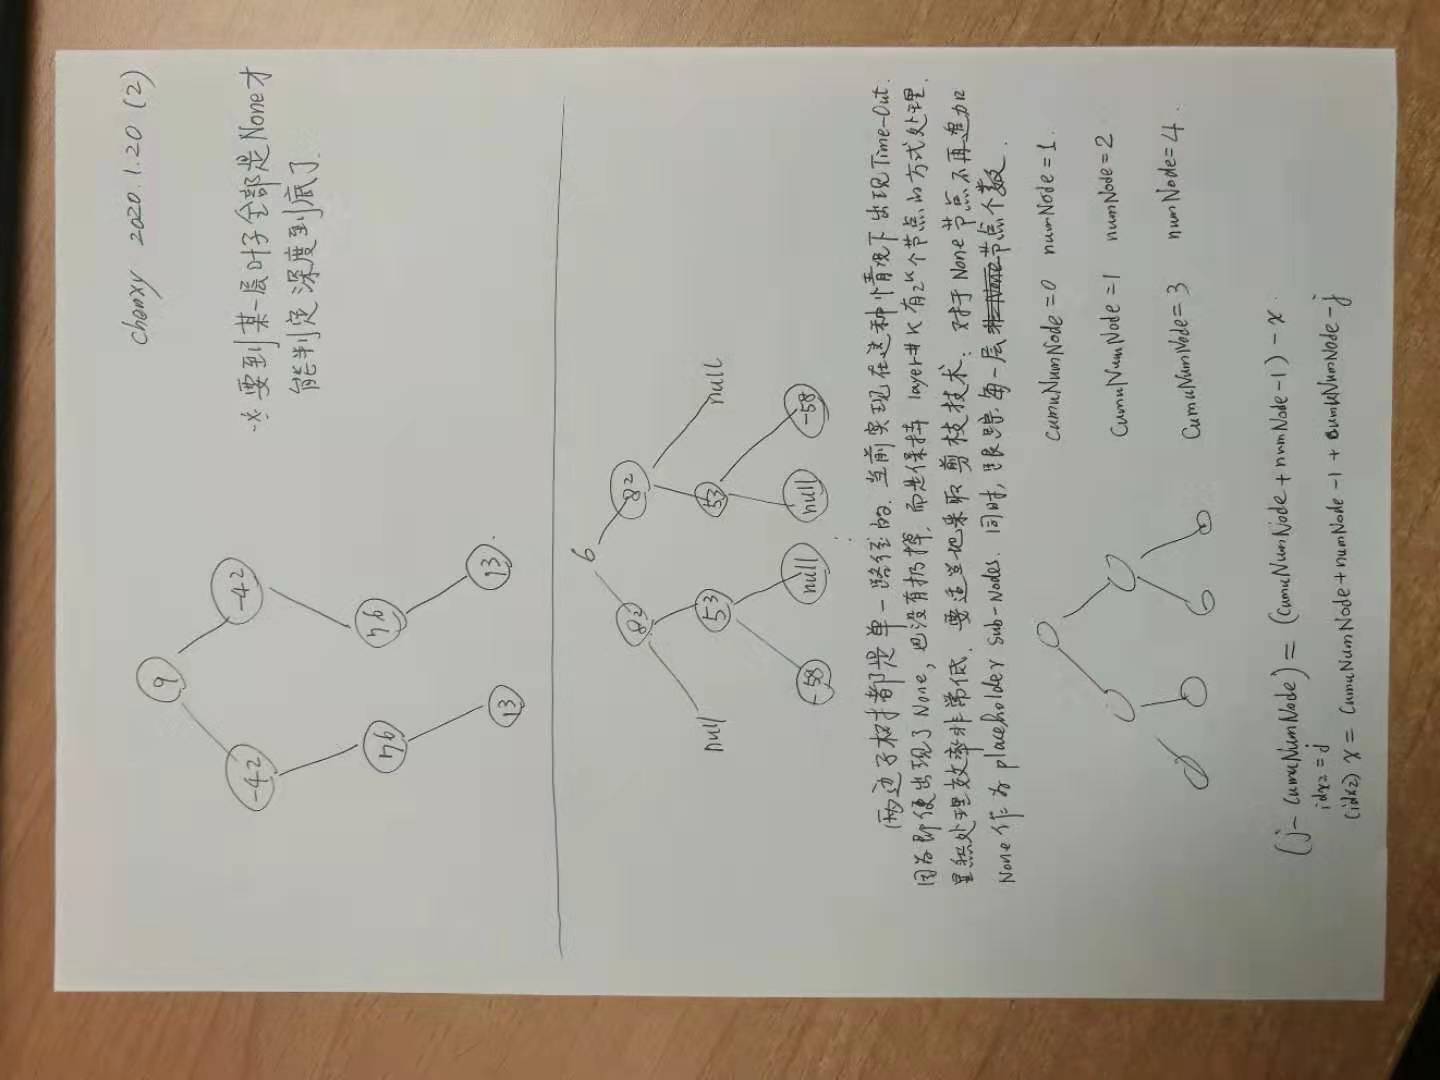 chenxy 2020.1.20 (2)
9
-42 -42
※要到某一层叶子全部是None才
能判定深度到底了.
76 76
13 13
6
82 82
null 53 53 null
-58 null null -58
两边子树都是单一路径的. 当前实现在这种情况下出现Time-Out.
因为即便出现了None, 也没有扔掉, 而是保持 layer#K 有2^K个节点的方式处理.
显然处理效率非常低. 要适当地采取剪枝技术: 对于None节点不再追加
None作为placeholder sub-nodes. 同时, 跟踪每一层非None节点个数.
cumuNumNode=0 numNode=1.
CumuNumNode=1 numNode=2
CumuNumNode=3 numNode=4.
(j-cumuNumNode)=(cumuNumNode+numNode-1)-x.
idx2=j
(idx2) x= cumuNumNode+numNode-1+cumuNumNode-j